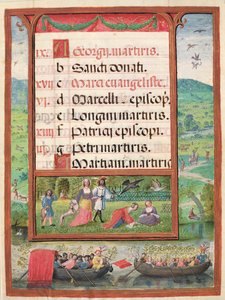 ix. A Georgij. martiris.
b Sancti donati.
xvij c Marci euangeliste.
vi d Marcelli. episcop.
e Longini. martiris
xiiij f Patricij episcopi.
iij g Petri martiris.
A Martiani. martiris